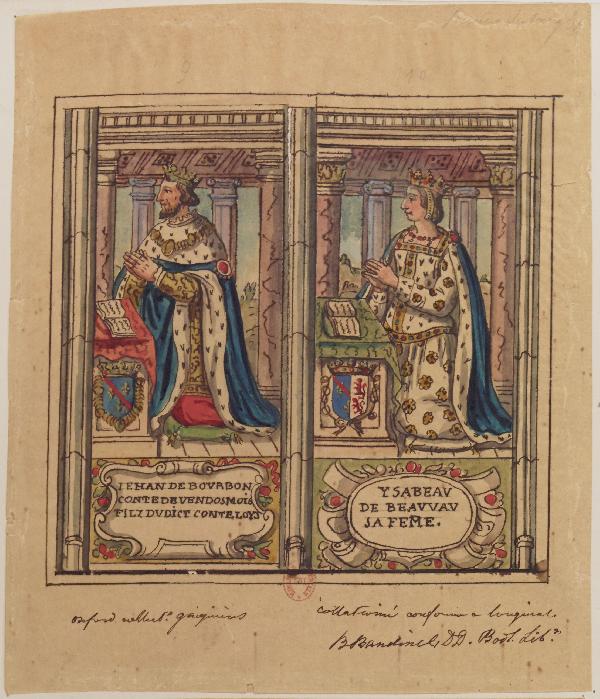 9
10
IEHAN DE BOVRBON
CONTE DE VENDOSMOIS
FILZ DVDICT CONTE LOYS
YSABEAV
DE BEAVVAV
SA FEME.
oxford collect.
collationné conforme a loriginal.
B Bandinel, D D. Bodl. Lib.r